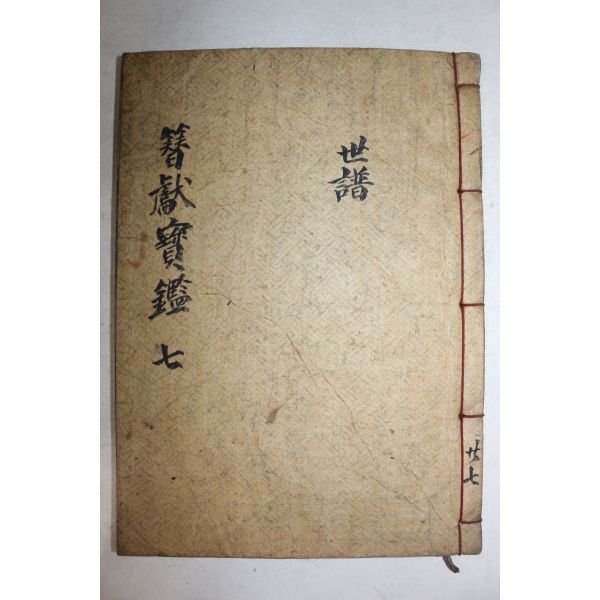 世譜
簪獻寶鑑 七
共七